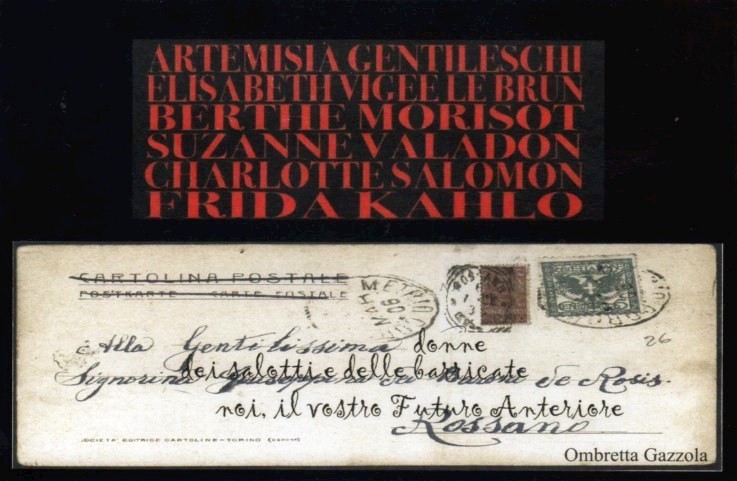 ARTEMISIA GENTILESCHI
ELISABETH VIGEE LE BRUN
BERTHE MORISOT
SUZANNE VALADON
CHARLOTTE SALOMON
FRIDA KAHLO
CARTOLINA POSTALE
POSTKARTE - CARTE POSTALE
Alla Gentilissima donne
dei salotti e delle barricate
Signorina Giuseppina dei Baroni de Rosis.
noi, il vostro Futuro Anteriore
Rossano
26
SOCIETÀ EDITRICE CARTOLINE - TORINO
Ombretta Gazzola